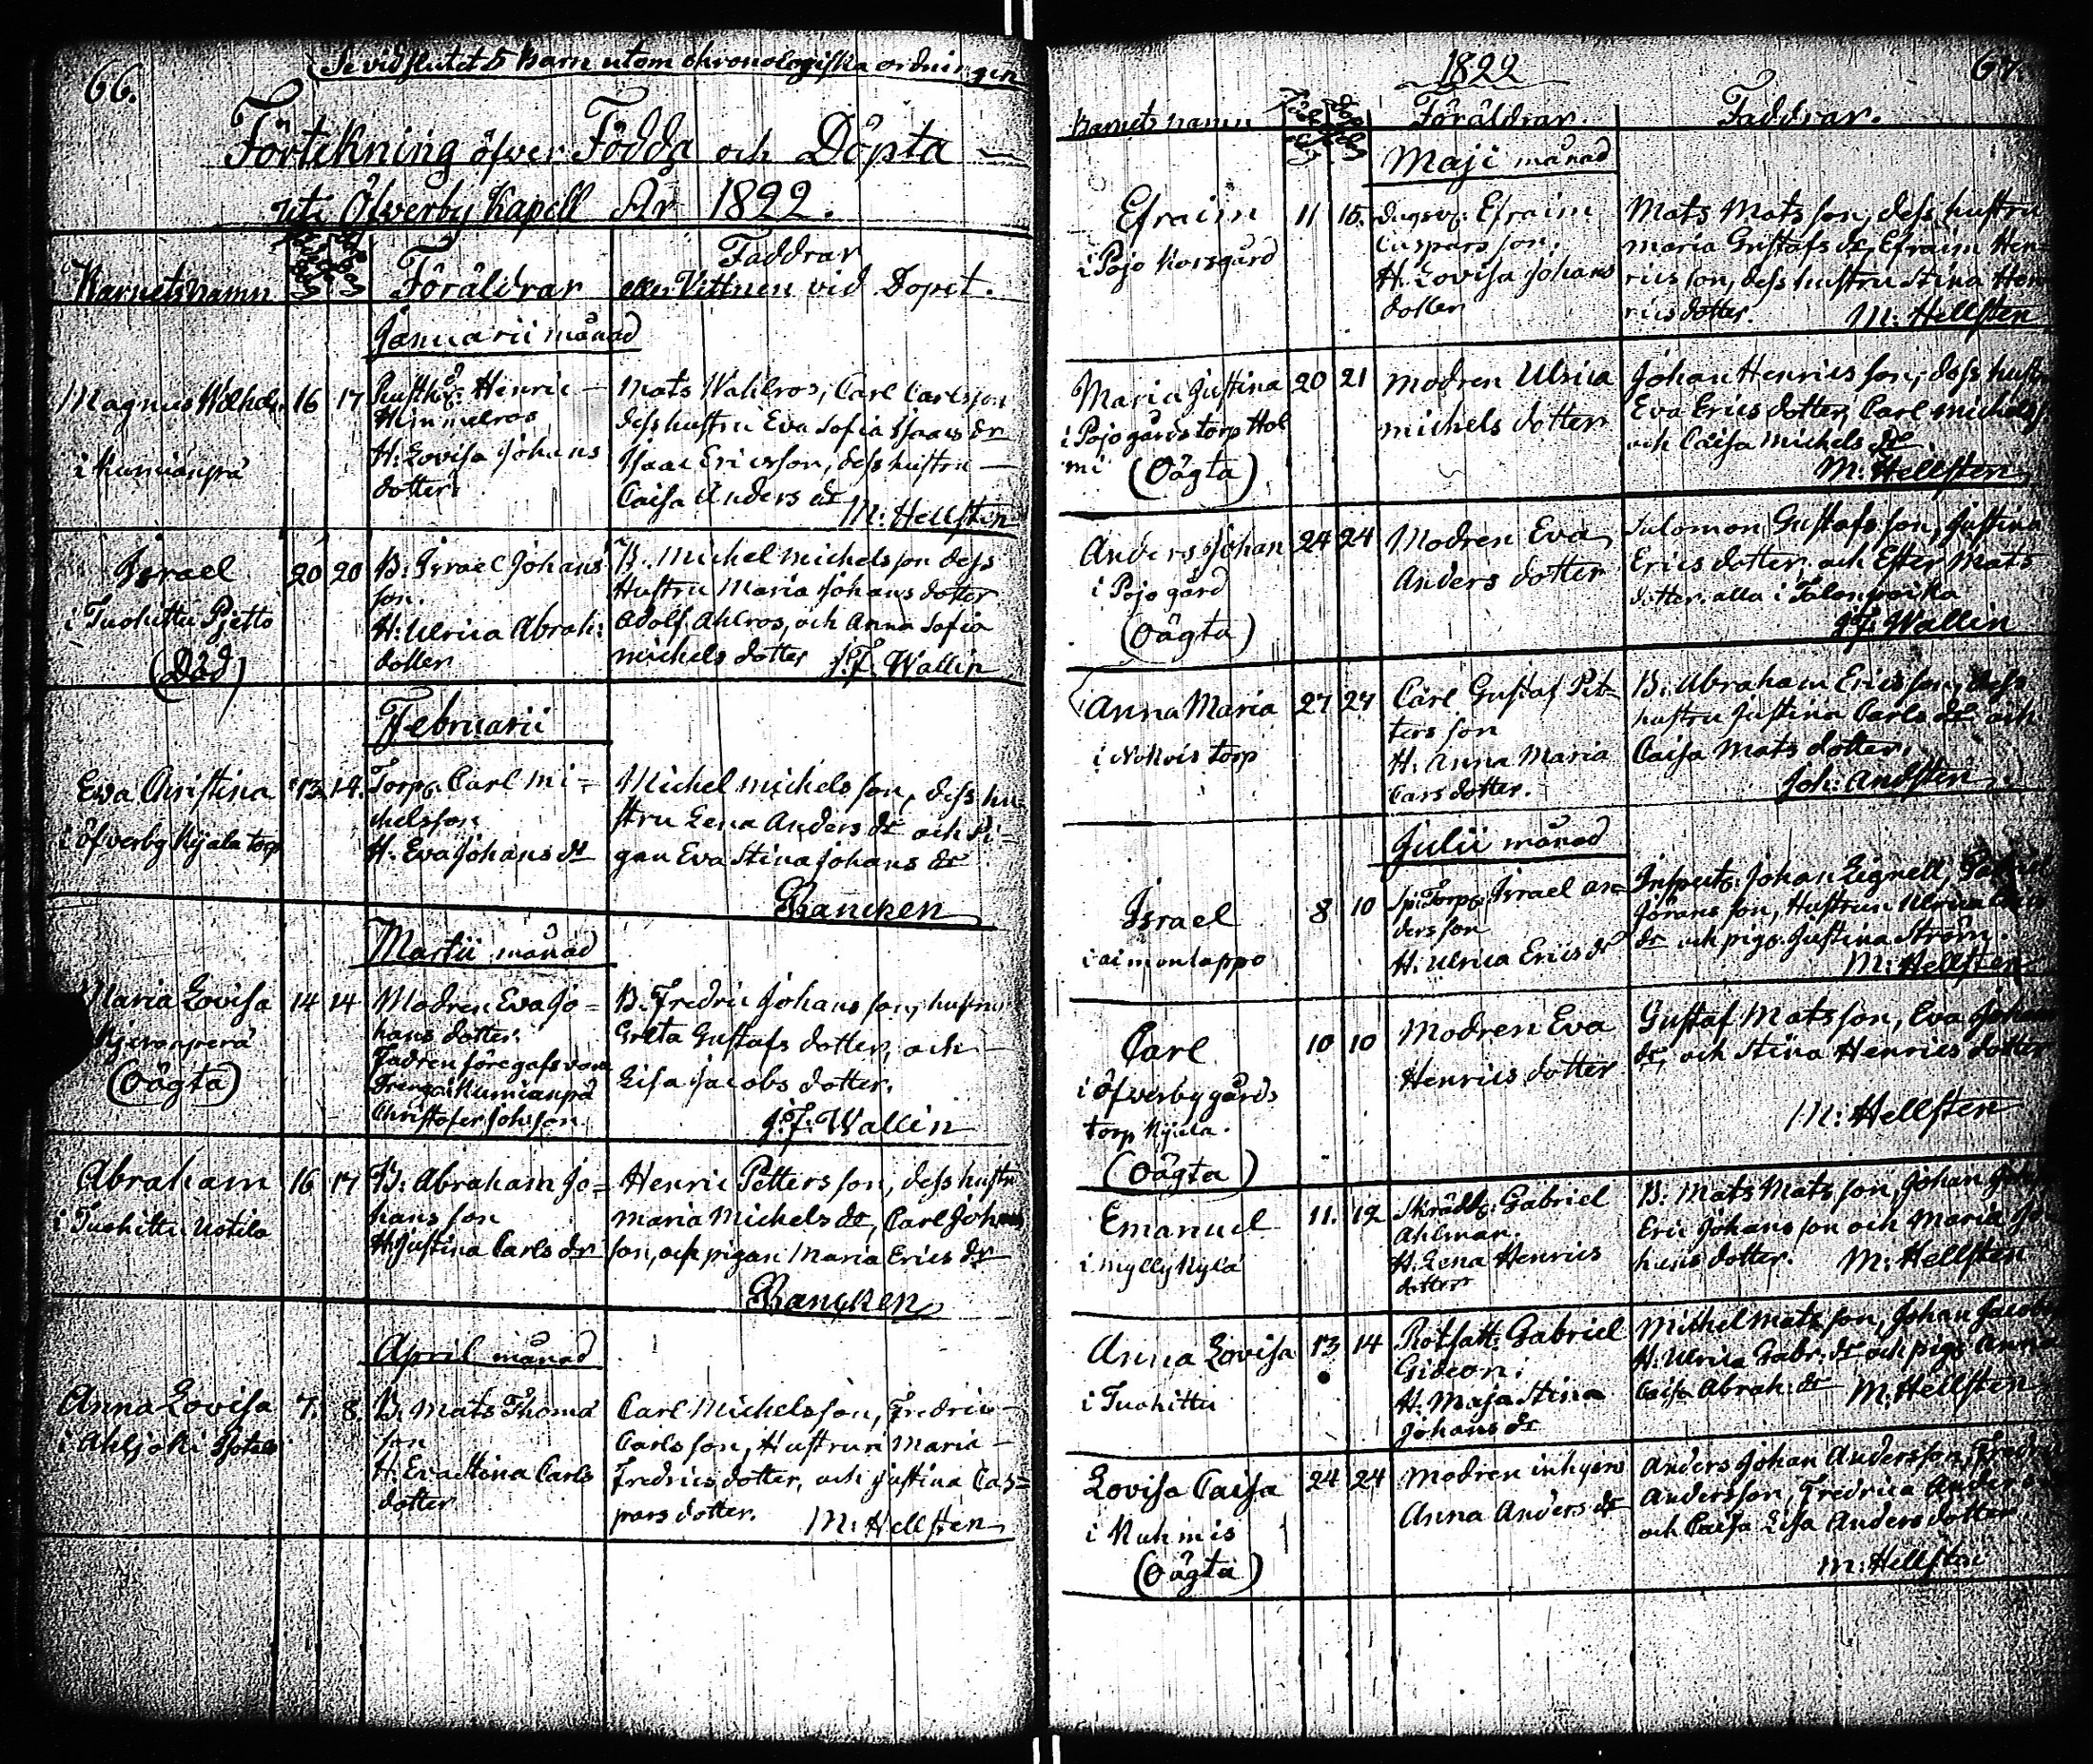 66.
Se vid slutet 5 Barn utom chronologiska ordningen
Förtekning öfver Födda och Döpta
uti Öfverby Kapell År 1822.
Barnets namn
Föräldrar
Faddrar
eller Vittnen vid Dopet.
Januarii månad
Magnus Wilhelm 16 17
i Kumianpä
Rusth: Henric
Himmelros
H: Lovisa Johans
dotter.
Mats Wahlros, Carl Carlsson
dess hustru Eva Sofia Isaacs dr
Isaac Ericsson, dess hustru
Caisa Anders dr
M: Hellsten
Israel 20 20
i Tuohittu Pjetto
(Död)
B: Israel Johans
son.
H: Ulrica Abrah:
dotter
B. Michel Michelsson dess
Hustru Maria Johans dotter
Adolf Ahlros, och Anna Sofia
Michels dotter J.F. Wallin
Februarii
Eva Christina 13 14.
i Öfverby Kyala torp
Torp. Carl Mi-
chelsson
H. Eva Johans dr
Michel Michelsson, dess hu
stru Lena Anders dr och Pi-
gan Eva Stina Johans dr
Bancken
Martii månad
Maria Lovisa 14 14
(Oägta)
Modren Eva Jo-
hans dotter.
Fadren föregafs vara
Dreng i Kumianpä
Christofer Johsson.
B. Fredric Johansson, hustru
Greta Gustafs dotter, och
Lisa Jacobs dotter.
J:F: Wallin
Abraham 16 17
i Tuohittu Uotila
B: Abraham Jo-
hansson
H: Justina Carls dr
Henric Pettersson, dess hustru
Maria Michels dr, Carl Johans
son, och pigan Maria Erics dr
Bancken
April månad
Anna Lovisa 7. 8.
i Ahljoki
B: Mats Thoma
son
H: Eva Stina Carls
dotter
Carl Michelsson, Fredric
Carlsson, Hustrun Maria
Fredrics dotter, och Justina Cas-
pars dotter. M: Hellsten
1822
67.
Barnets namn
Föräldrar.
Faddrar.
Maji månad
Efraim 11 15.
i Pojo Korsgård
Dagsv: Efraim
Casparsson.
H. Lovisa Johans
dotter
Mats Matsson, dess hustru
Maria Gustafs dr, Efraim Hen-
ricsson, dess hustru Stina Hen
rics dotter. M: Hellsten
Maria Justina 20 21
i Pojo gårds torp Hol
mi (Oägta)
Modren Ulrica
Michels dotter
Johan Henricsson, dess hustru
Eva Erics dotter, Carl Michels
och Caisa Michels dr
M: Hellsten
Anders Johan 24 24
i Pojo gård
(Oägta)
Modren Eva
Anders dotter
Salomon Gustafsson, Justina
Erics dotter och Ester Mats
dotter, alla i
J.F. Wallin
Anna Maria 27 27
i Nokvis torp
Carl Gustaf Pet-
tersson
H. Anna Maria
Cars dotter.
B: Abraham Ericsson, dess
hustru Justina Carls dr och
Caisa Mats dotter.
Joh: Andsten
Julii månad
Israel 8 10
i aimonlappo
Sp: Torp. Israel An-
dersson
H. Ulrica Erics dr
Inspect. Johan Lignell,
Göransson, Hustrun Ulrica
dr och pig. Justina Ström.
M: Hellsten
Carl 10 10
i Öfverby gårds
torp Kyala.
(Oägta)
Modren Eva
Henrics dotter
Gustaf Matsson, Eva Johans
dr, och Stina Henrics dotter
M: Hellsten
Emanuel 11. 12
i Myllykylä
Skrädd. Gabriel
Ahlman.
H. Lena Henrics
dotter
B: Mats Matsson, Johan
Eric Johansson och Maria Jo
hans dotter. M: Hellsten
Anna Lovisa 13 14
i Tuohittu
Rotsatt. Gabriel
Gideon.
H. Maja Stina
Johans dr
Michel Matsson, Johan Jacobs
H. Ulrica Gabr. dr och pig. Anna
Caisa Abrah. dr M: Hellsten
Lovisa Caisa 24 24
i Kuhmis
(Oägta)
Modren inhyses
Anna Anders dr
Anders Johan Andersson, Fredric
Andersson, Fredrica Anders
och Caisa Lisa Anders dotter
M: Hellsten